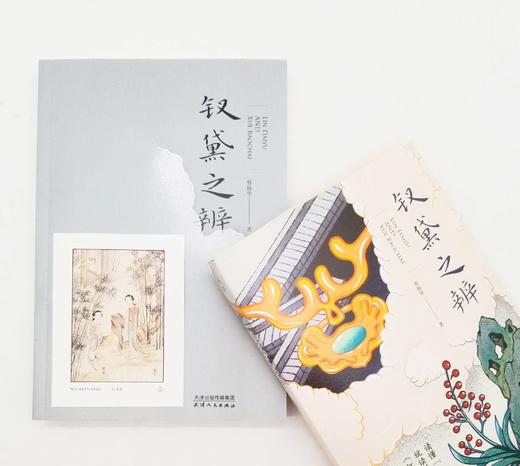 钗黛之辨
LIN DAIYU
AND
XUE BAOCHAI
著
天津出版传媒集团
天津人民出版社
钗黛之辨
LIN DAIYU
AND
XUE BAOCHAI
著
读懂